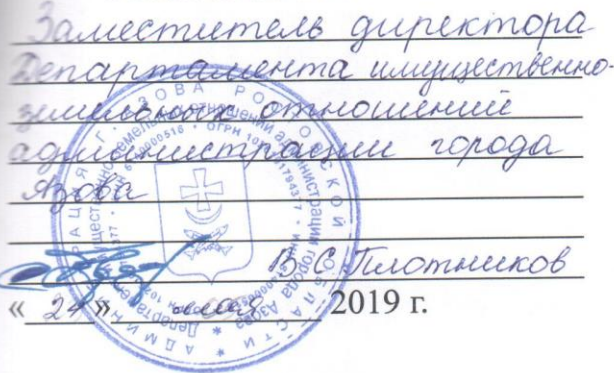 Заместитель директора
Департамента имущественно-
земельных отношений
администрации города
Азова
В. С. Плотников
« 24 » мая 2019 г.